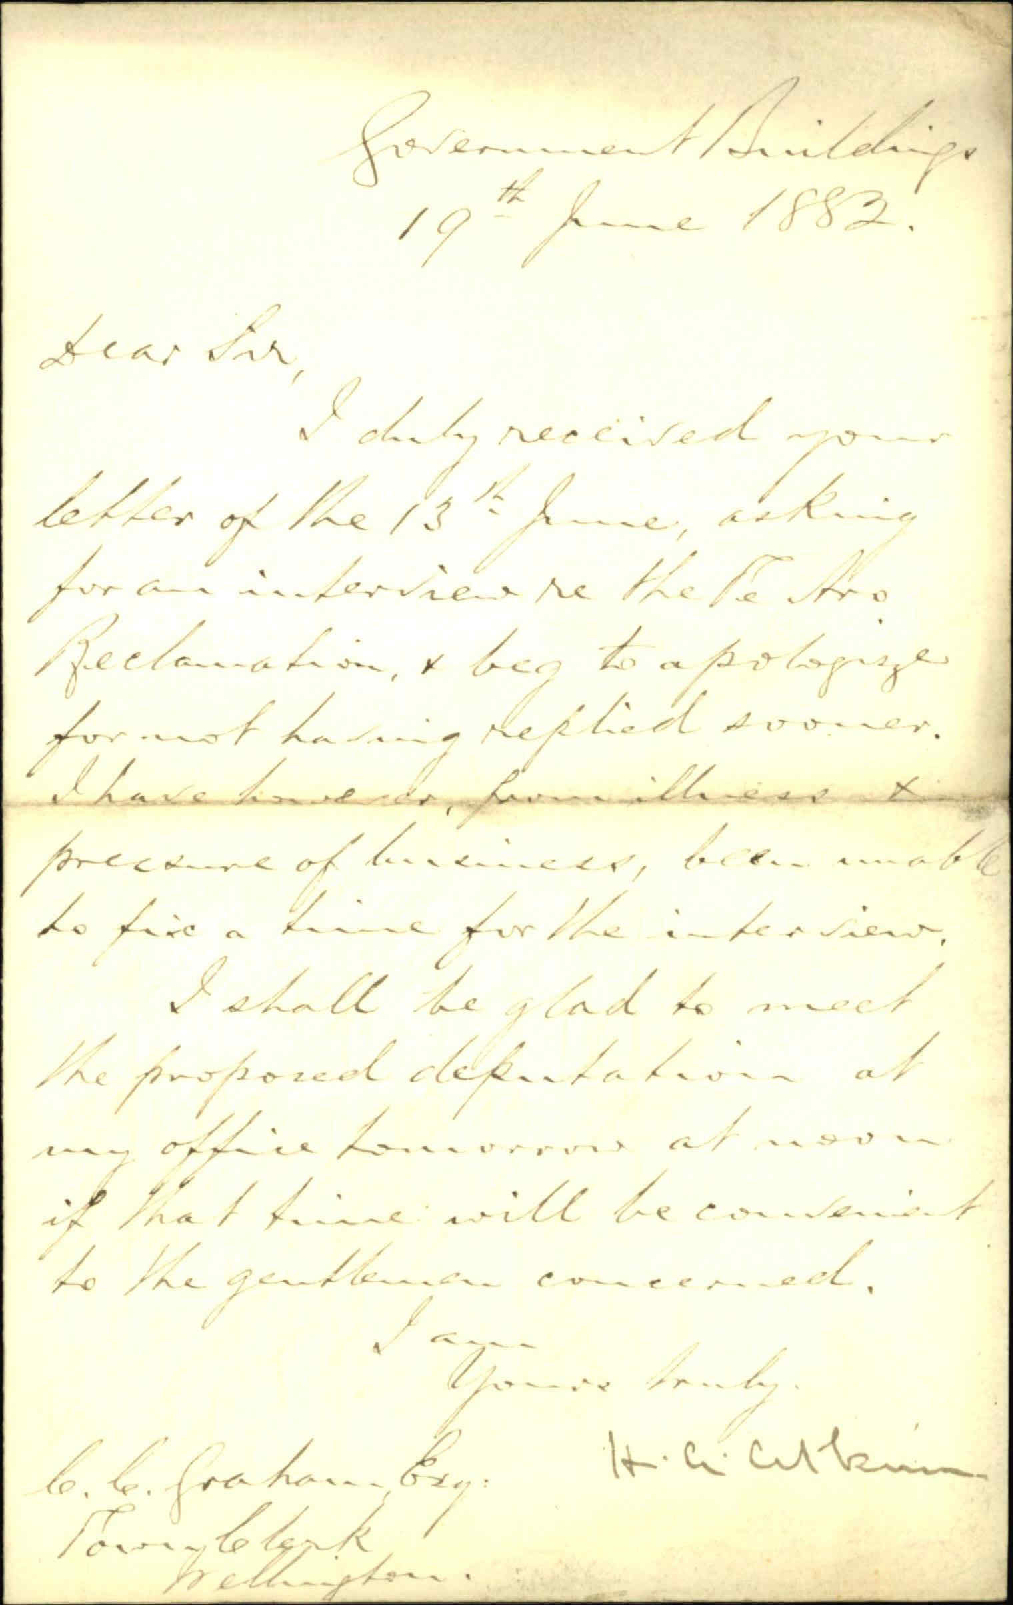 Government Buildings
19th June 1882.
Dear Sir,
I duly received your
letter of the 13th June, asking
for an interview re the Te Aro
Reclamation, & beg to apologize
for not having replied sooner.
I have however, from illness &
pressure of business, been unable
to fix a time for the interview.
I shall be glad to meet
the proposed deputation at
my office tomorrow at noon
if that time will be convenient
to the gentlemen concerned.
I am
Yours truly.
H. A. Atkinson
C. C. Graham, Esq:
Town Clerk
Wellington.